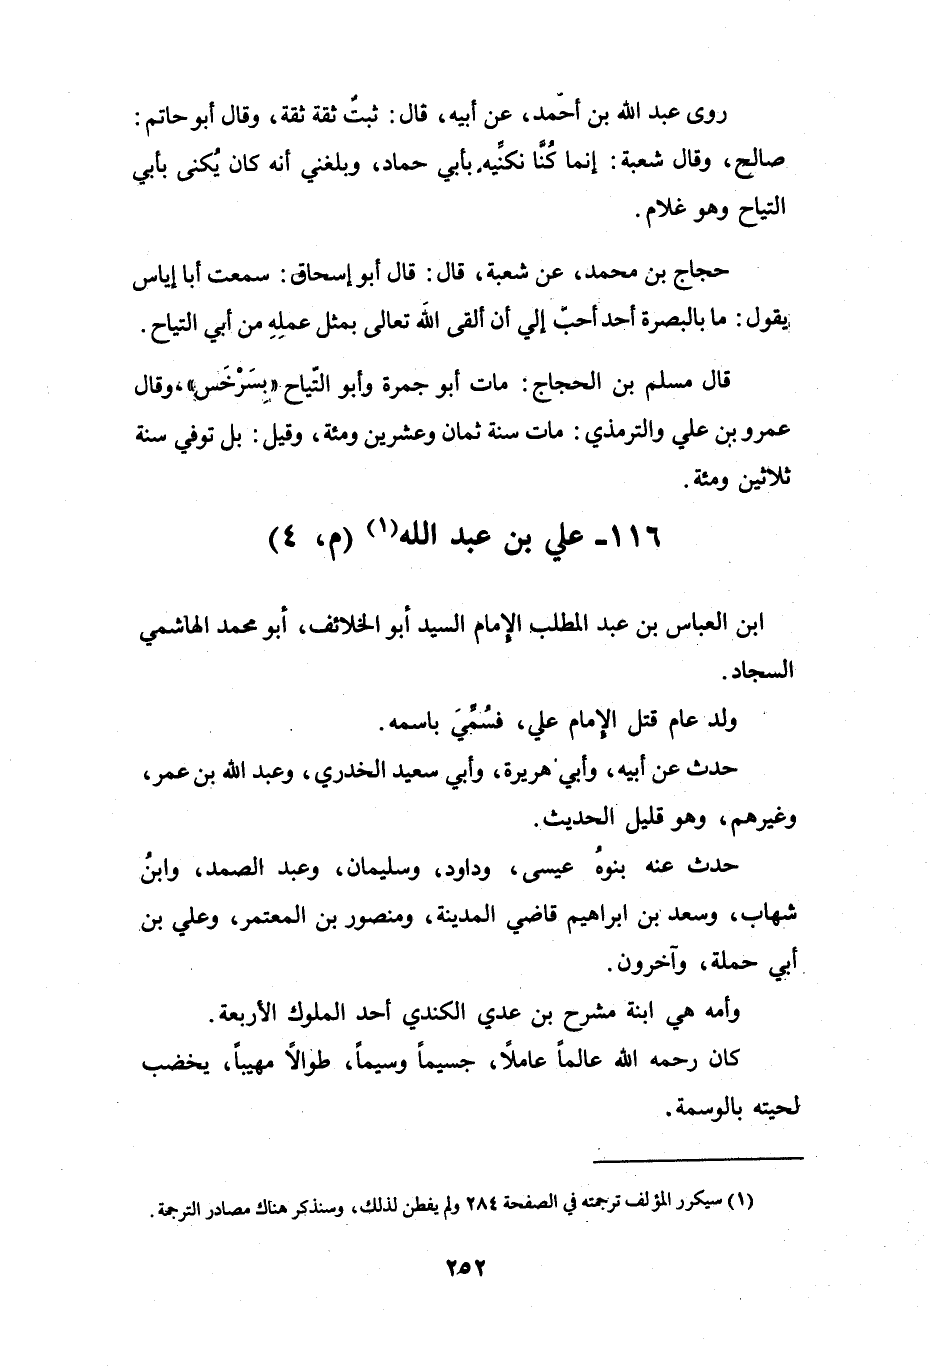 روى عبد الله بن أحمد، عن أبيه، قال: ثبتٌ ثقة ثقة، وقال أبو حاتم:
صالح، وقال شعبة: إنما كُنَّا نكنِّيه بأبي حماد، وبلغني أنه كان يُكنى بأبي
التياح وهو غلام.
حجاج بن محمد، عن شعبة، قال: قال أبو إسحاق: سمعت أبا إياس
يقول: ما بالبصرة أحد أحبّ إلي أن ألقى اللَه تعالى بمثل عملِهِ من أبي التياح.
قال مسلم بن الحجاج: مات أبو جمرة وأبو التّياح «بِسَرْخَس»، وقال
عمرو بن علي والترمذي: مات سنة ثمان وعشرين ومئة، وقيل: بل توفي سنة
ثلاثين ومئة.
١١٦ـ علي بن عبد الله(١) (م، ٤)
ابن العباس بن عبد المطلب الإمام السيد أبو الخلائف، أبو محمد الهاشمي
السجاد.
ولد عام قتل الإمام علي، فسُمِّيَ باسمه.
حدث عن أبيه، وأبي هريرة، وأبي سعيد الخدري، وعبد الله بن عمر،
وغيرهم، وهو قليل الحديث.
حدث عنه بنوهُ عيسى، وداود، وسليمان، وعبد الصمد، وابنُ
شهاب، وسعد بن ابراهيم قاضي المدينة، ومنصور بن المعتمر، وعلي بن
أبي حملة، وآخرون.
وأمه هي ابنة مشرح بن عدي الكندي أحد الملوك الأربعة.
كان رحمه الله عالماً عاملًا، جسيماً وسيماً، طوالًا مهيباً، يخضب
لحيته بالوسمة.
(١) سيكرر المؤلف ترجمته في الصفحة ٢٨٤ ولم يفطن لذلك، وسنذكر هناك مصادر الترجمة.
٢٥٢